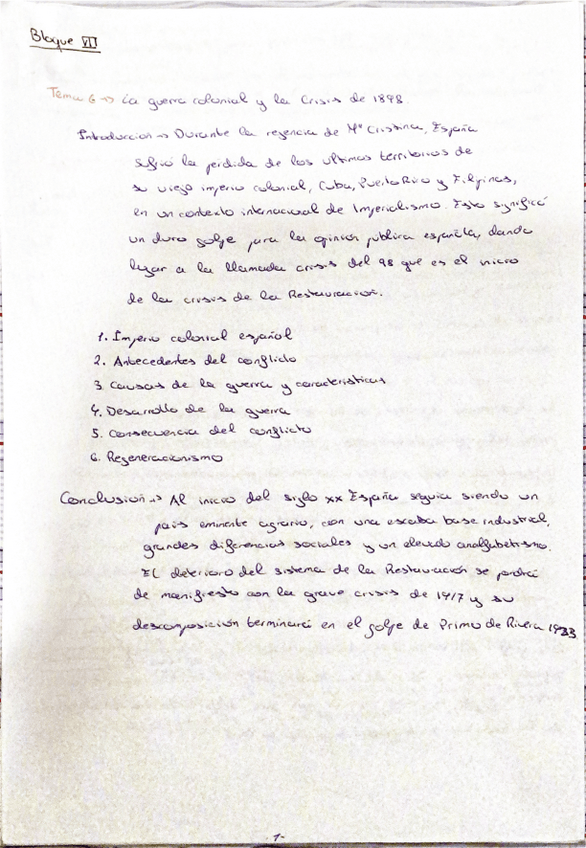 Bloque VII
Tema 6 → La guerra colonial y la Crisis de 1898.
Introduccion → Durante la regencia de Mª Cristina, España
sufrió la perdida de los ultimos territorios de
su viejo imperio colonial, Cuba, Puerto Rico y Filipinas,
en un contexto internacional de Imperialismo. Esto significó
un duro golpe para la opinión pública española, dando
lugar a la llamada crisis del 98 que es el inicio
de la crisis de la Restauración.
1. Imperio colonial español
2. Antecedentes del conflicto
3. Causas de la guerra y caracteristicas
4. Desarrollo de la guerra
5. Consecuencia del conflicto
6. Regeneracionismo
Conclusion → Al inicio del siglo XX España seguia siendo un
pais eminente agrario, con una escasa base industrial,
grandes diferencias sociales y un elevado analfabetismo.
El deterioro del sistema de la Restauración se pondrá
de manifiesto con la grave crisis de 1917 y su
descomposición terminará en el golpe de Primo de Rivera 1923.
-1-